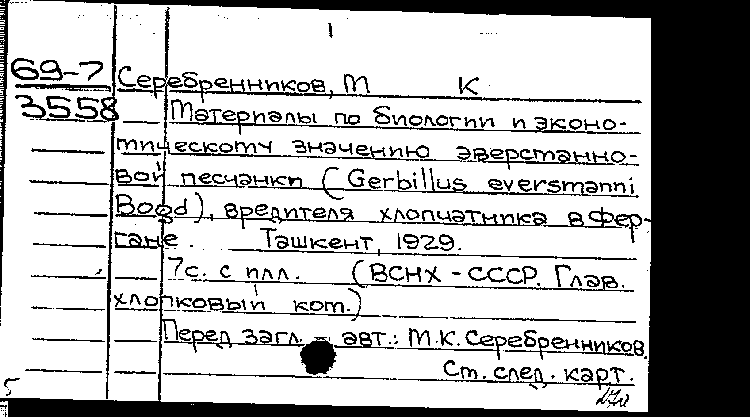 1
69-7 Серебренников, М К
3558 Материалы по биологии и эконо-
мическому значению эверстанно-
вой песчанки (Gerbillus eversmanni
Bogd), вредителя хлопчатника в Фер-
гане. Ташкент, 1929.
7с. с илл. (ВСНХ - СССР. Глав.
хлопковый ком.)
Перед загл. - авт.: М.К. Серебренников.
См. след. карт.
5